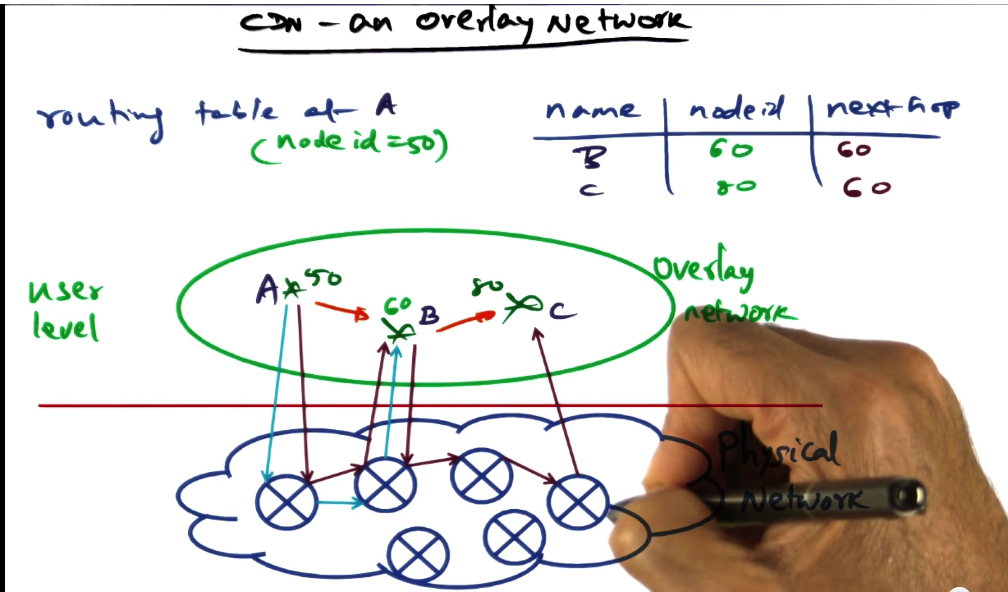 CDN - an overlay Network
routing table at A
(node id = 50)
name | node id | next hop
B | 60 | 60
C | 80 | 60
user
level
A 50
60 B
80 C
Overlay
network
Physical
Network